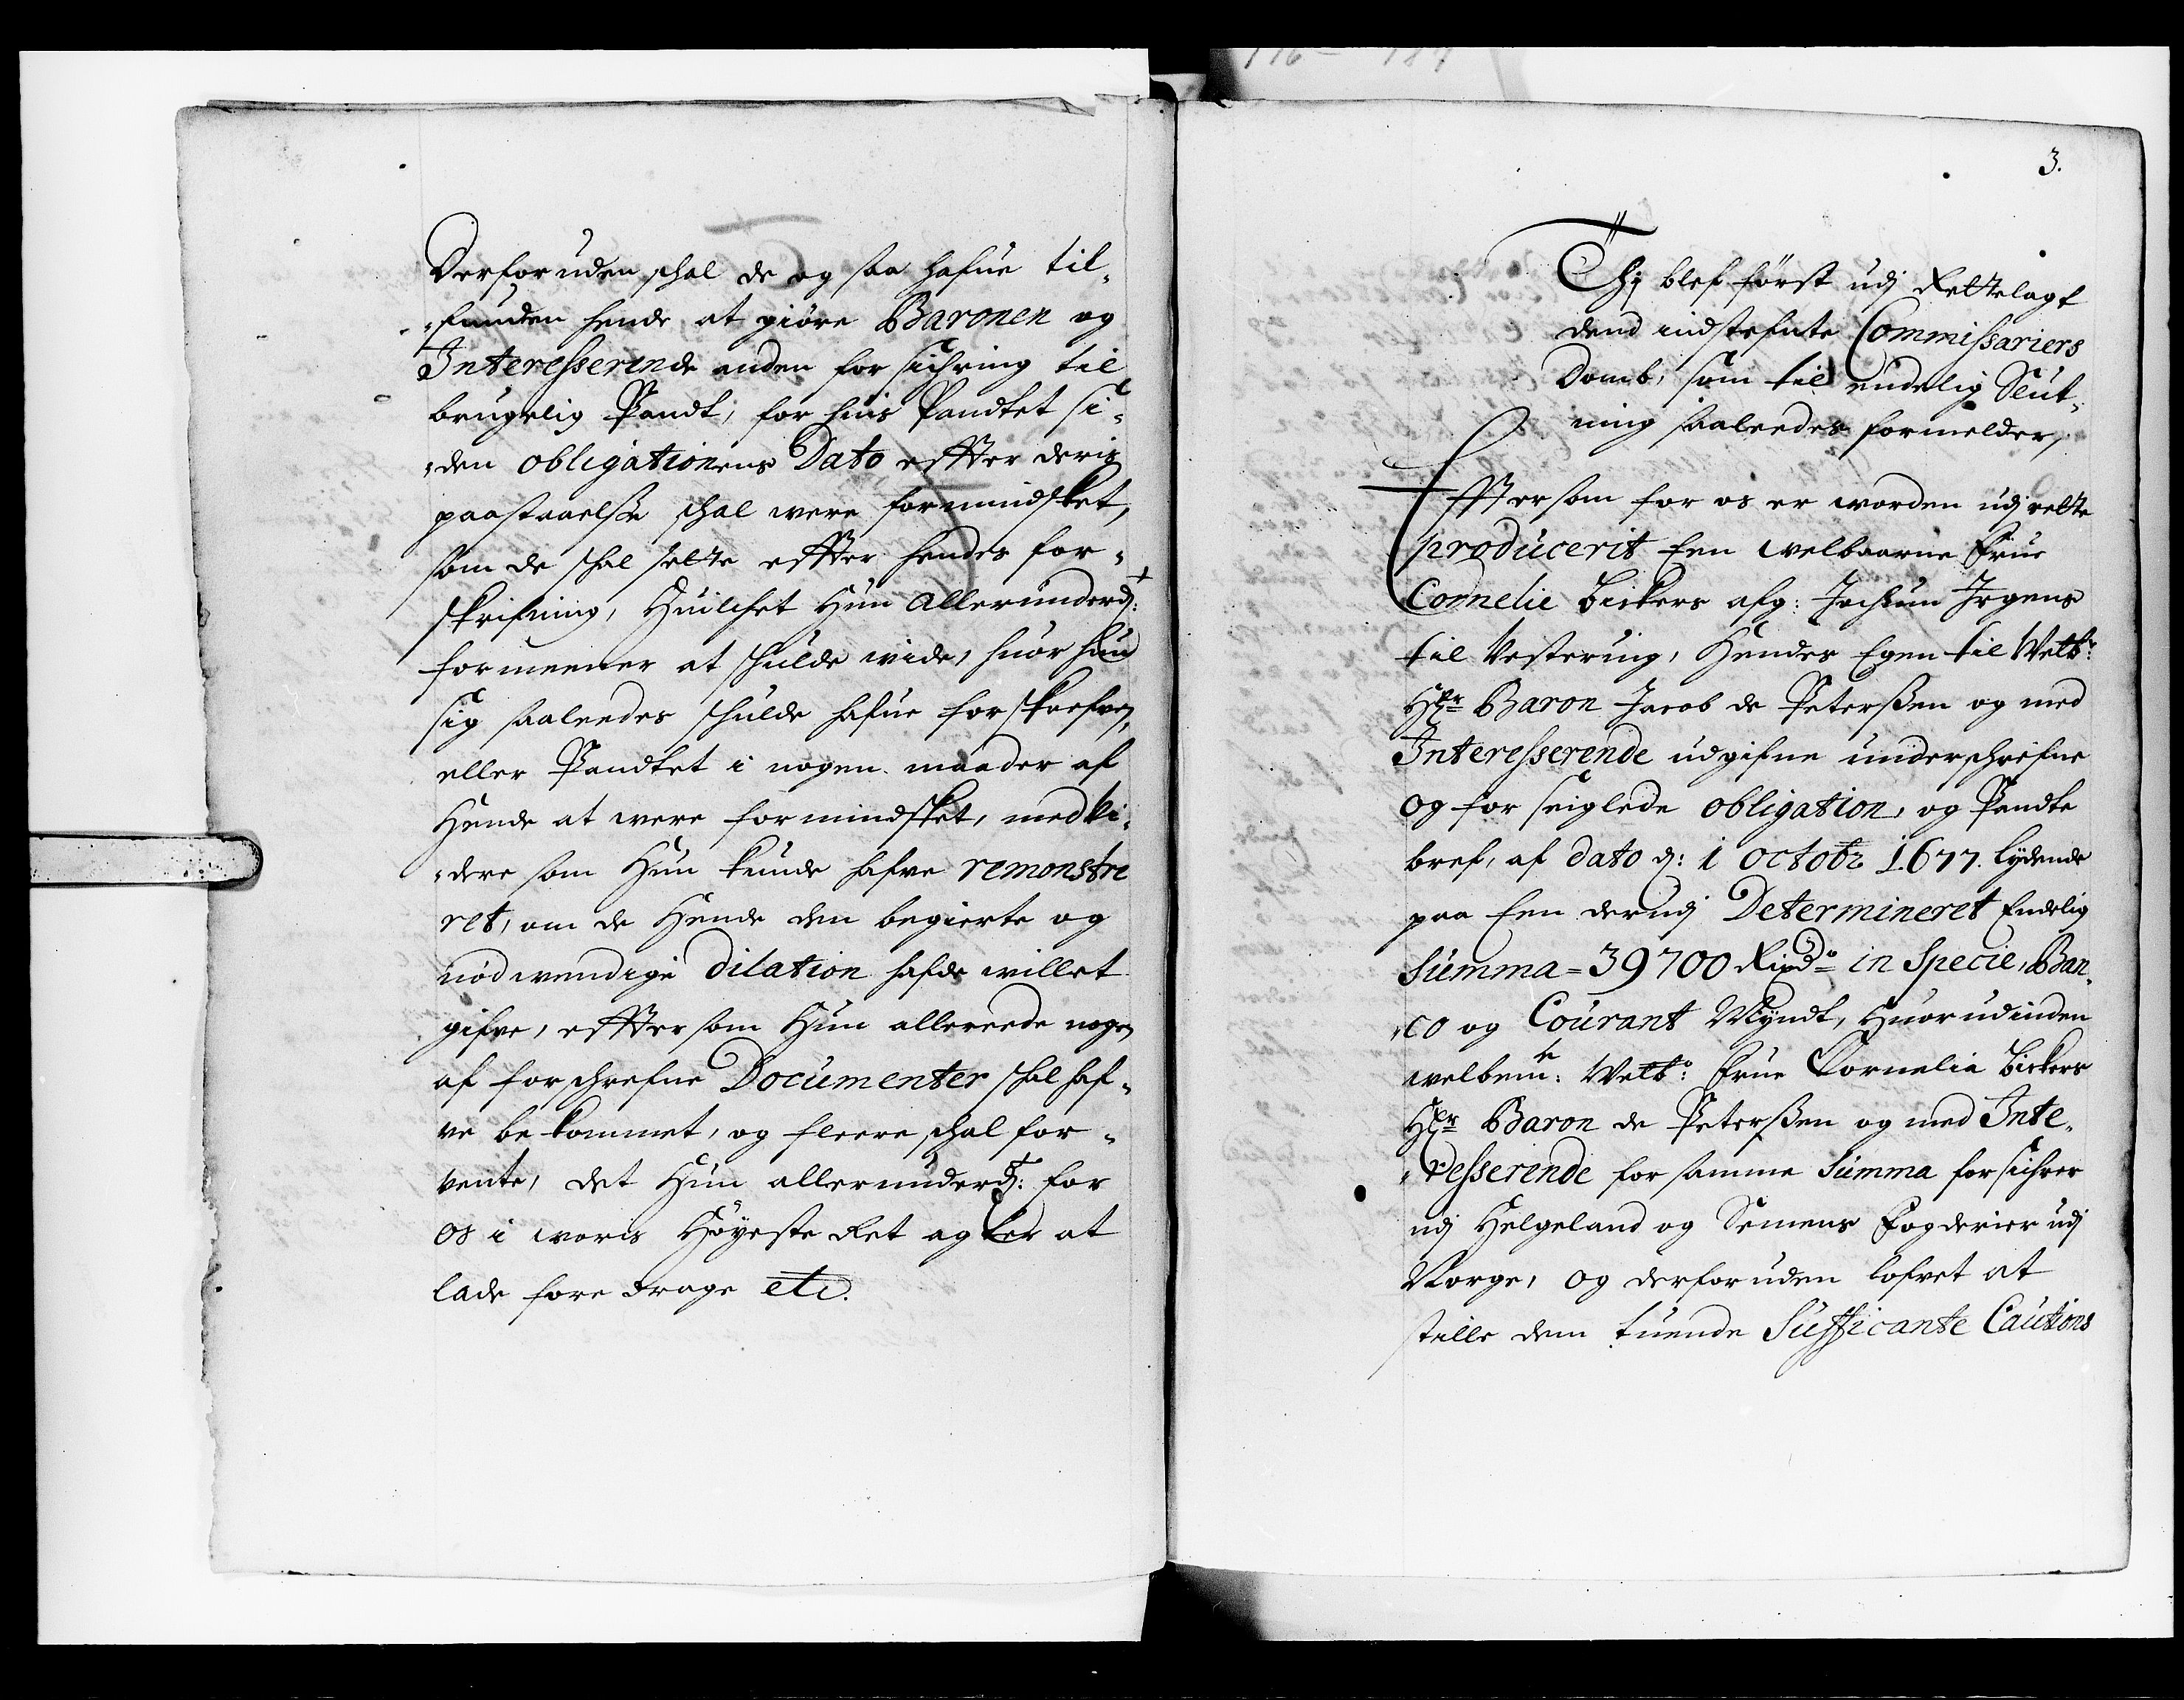 Derforuden schal de og saa hafue til„
„funden hende at giøre Baronen og
Interesserende anden forsichring til
brugelig Pandt, for huis Pandtet si„
„den obligationens Dato effter deris
paastaaelse schal were formindsket,
som de schal selte effter hendes for„
skrifning, Huilchet Hun allerunderd:
formeener at schulde vide, huor hun
sig saaleedes schulde hafue forskrefven,
eller Pandtet i nogen maader af
Hende at were formindsket, med vi„
„dere som Hun kunde hafve remonstre
ret, om de Hende den begierte og
nødwendige dilation hafde willet
gifve, effter som Hun allereede nogen
af forschrefne Documenter schal haf„
ve bekommet, og fleere schal for„
vente, det Hun allerunderd: for
os i woris Høyeste Ret agter at
lade foredrage etc.
3.
Thj blef først udj Rettelagt
dend indstefnte Commissariers
Domb, som til endelig Slut„
ning saaleedes formelder,
Effter som for os er worden udj rette
producerit Een welbaarne Frue
Cornelie Bickers afg: Jochum Irgens
til Vesterwig, Hendes Egen til Welb:
Hr Baron Jacob de Peterssen og med
Interesserende udgifne underschrefne
og forseiglede obligation, og Pandte
bref, af dato d: 1 octobr 1677. lydende
paa Een derudj Determineret Endelig
Summa = 39700 Rixdr in Specie, Ban„
„co og Courant Myndt, Huorudinden
welbemte: Welb: Frue Cornelia Bickers
Hr Baron de Peterssen og med Inte„
„resserende for samme Summa forsichrer
udj Helgeland og Semens Fogderier udj
Norge, og derforuden lofvet at
stille dem tuende Sufficante Cautions